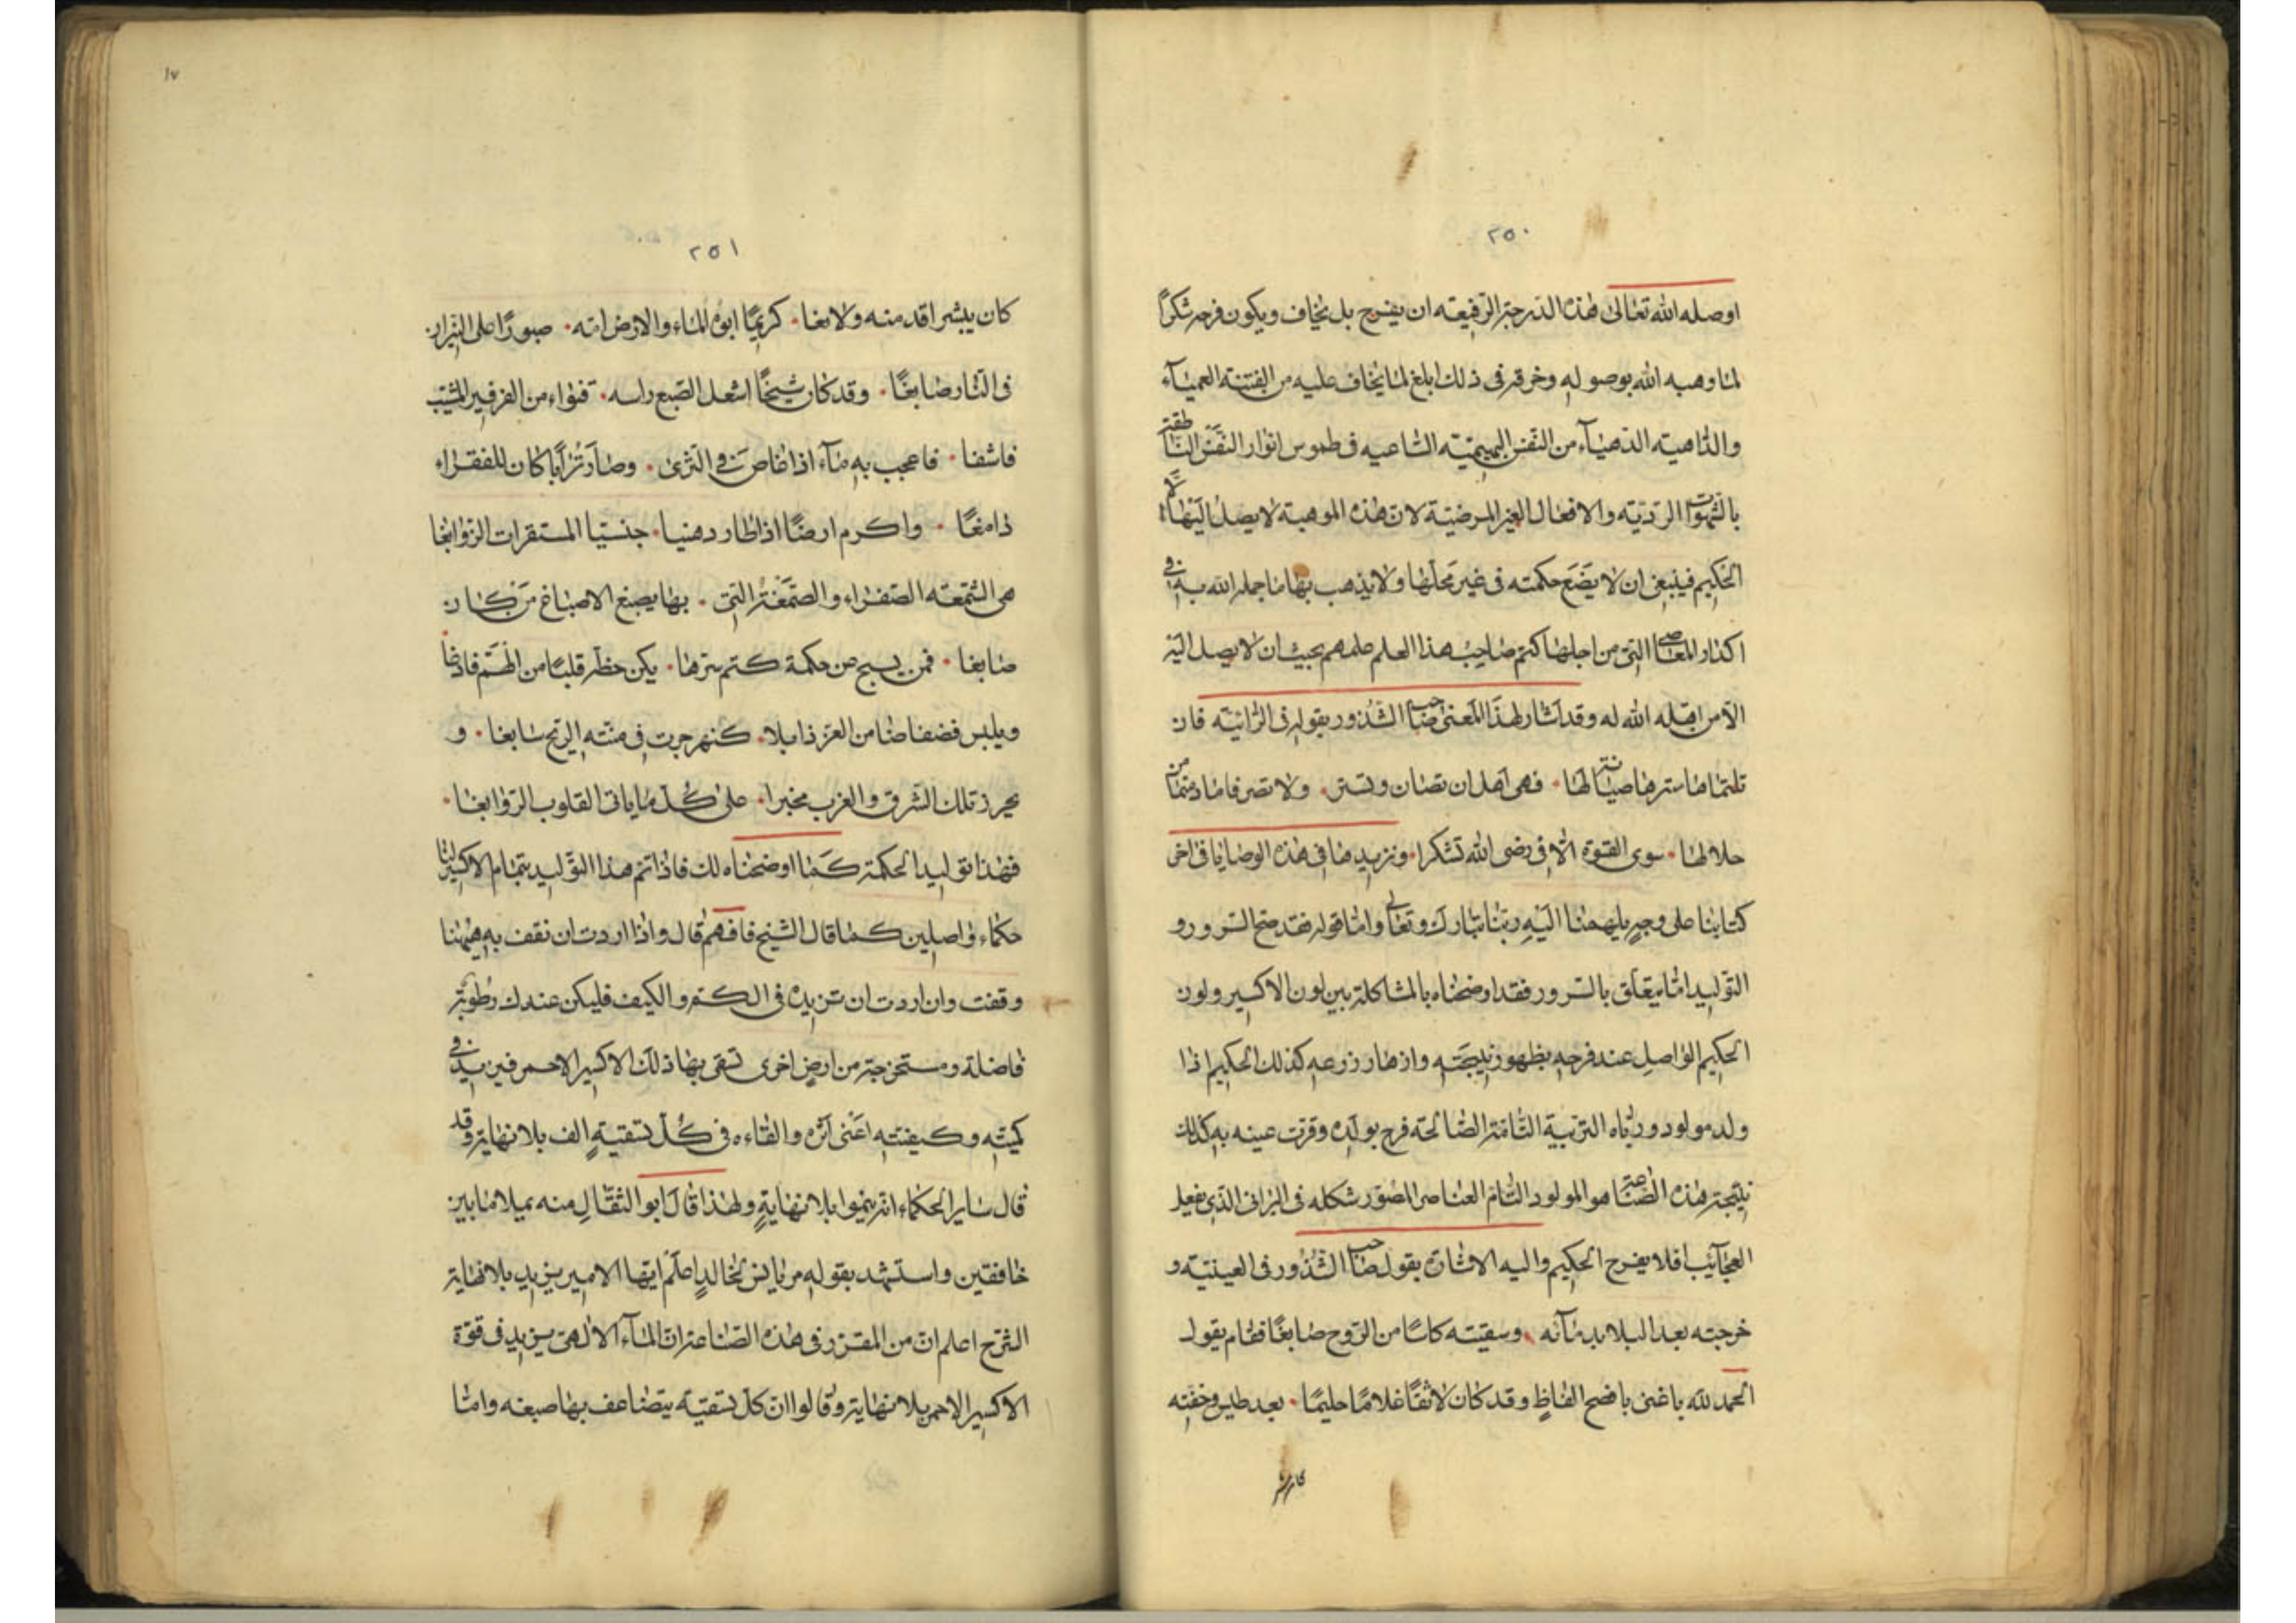 ٢٥٠
اوصله الله تعالى هذه الدرجة الرفيعه ان يفرح بل يخاف ويكون فرحه شكرًا
لما وهبه الله بوصوله وخرقه فى ذلك ابلغ لما يخاف عليه من الفتنة العمياء
والداهيه الدهياء من النفس البهيميّه الساعيه فى طموس انوار النفس الناطقة
بالشهوات الرديّه والافعال الغير المرضيّة لان هذه الموهبة لا يصل اليها الّا
الحكيم فينبغى ان لا يضع حكمته فى غير محلها ولا يذهب بها ما جمله الله به فى
اكدار المعاصى التى من اجلها كتم صاحب هذا العلم علمهم بحيث ان لا يصل اليه
الّا من اهّله الله له وقد اشار لهذا المعنى صاحب الشذور بقوله فى الرائيّة فان
نلتماها سترها صيانة لها ۰ فهى اهل ان تصان وتستر ۰ ولا تصرفا ما دمتما من
حلالها ۰ سوى القوة الّا فى رضى الله تشكرا ۰ ونزيدها فى هذه الوصايا فى اخر
كتابنا على وجهٍ يلهمنا اليه ربنا تبارك وتعالى واما قوله فقد صح السرور و
التوليد اما يتعلق بالسرور فقد اوضحناه بالمشاكلة بين لون الاكسير ولون
الحكيم الواصل عند فرحه بظهور نتيجته وازهار زرعه كذلك الحكيم اذا
ولد مولود وربّاه التربية التامّة الصالحه فرح بولده وقرت عينه به كذلك
نتيجة هذه الصناعة هو المولود التام العناصر المصوّر شكله فى البرانى الذى يفعل
العجائب افلا يفرح الحكيم واليه الاشارة بقول صاحب الشذور فى العينيّه و
خرجته بعد البلا بدمائه ۰ وسقيته كاسًا من الروح صابغًا فقام يقول
الحمد لله باغنى بافصح الفاظٍ وقد كان لاثغًا غلامًا حليمًا ۰ بعد طيش وخفته
٢٥١
كان يبشر اقد منه ولابغا ۰ كريمًا ابوه الماء والارض امه ۰ صبورًا على النيران
فى النار صابغًا ۰ وقد كان شيخًا اشعل الصبع راسه ۰ فتواء من الفرفير المشيب
فاشفا ۰ فاعجب به ماء اذا غاص فى الثرى ۰ وصار ترابًا كان للفقراء
دامغًا ۰ واكرم ارضًا اذا طار دهنيا ۰ جنسيا المستقرات الزوابغا
هى الشمعه الصفراء والصمغة التى ۰ بها يصبغ الاصباغ من كان
صابغا ۰ فمن يسبح من حكمة كتم سرها ۰ يكن حظه قلبًا من الهمّ فارغا
ويلبس فضفاضا من العز ذا بلا ۰ كنهر جرت فى متنه الريح سابغا ۰ و
يحرز تلك الشرق والغرب مخبرا ۰ على كل ما ياتى القلوب الزوابغا ۰
فهذا توليد الحكمة كما اوضحناه لك فاذا تم هذا التوليد بتمام الاكسير لنا
حكماء واصلين كما قال الشيخ فافهم قال واذا اردت ان نقف به هيهنا
وقفت وان اردت ان تزيده فى الكم والكيف فليكن عندك رطوبة
فاضلة ومستخرجة من ارض اخرى تسقى بها ذلك الاكسير الاحمر فيزيد فى
كميّته وكيفيته اعنى اثره والقاءه فى كل تسقيةٍ الف بلا نهاية وقد
قال ساير الحكماء انه ينموا بلا نهايةٍ ولهذا قال ابو الثقال منه يميلا ما بين
خافقين واستشهد بقوله مريانس لخالدٍ اعلم ايها الامير يزيد بلا نهاية
الشرح اعلم ان من المقرر فى هذه الصناعة ان الماء الالهى يزيد فى قوّة
الاكسير الاحمر بلا نهاية وقالوا ان كل تسقيّه يتضاعف بها صبغه واما